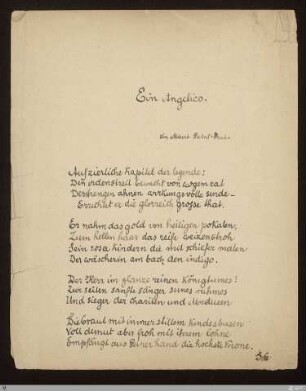 Ein Angelico.
Von Albert
Auf zierliche kapitel der legende:
Den erdenstreit bewacht von ewgem rat
Des strengen ahnen wirkungsvolle sende -
Errichtet er die glorreich grosse that.
Er nahm das gold von heiligen pokalen,
Zum hellen haar das reife weizenstroh
Das rosa kindern die mit schiefer malen
Der wäscherin am bach den indigo.
Der Herr im glanze reinen königtumes
Zur seiten sanfte sänger seines ruhmes
Und sieger der chariten und Medusen
Die braut mit immer stillem kindesbusen
Voll demut aber froh mit ihrem lohne
Empfängt aus seiner hand die höchste krone.